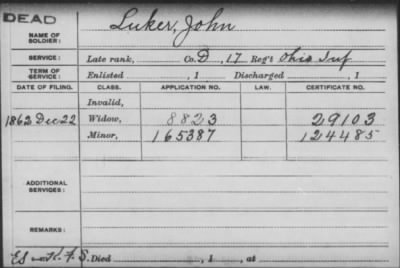 DEAD
NAME OF SOLDIER: Luker, John
SERVICE: Late rank, Co. D, 17 Reg't Ohio Inf
TERM OF SERVICE: Enlisted , 1 Discharged , 1
DATE OF FILING. CLASS. APPLICATION NO. LAW. CERTIFICATE NO.
Invalid,
1862 Dec 22 Widow, 8823 29103
Minor, 165387 124485
ADDITIONAL SERVICES:
REMARKS:
Died , 1 , at